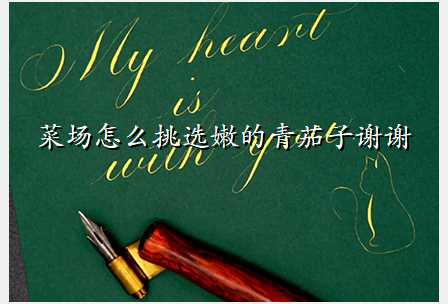 My heart
is
菜场怎么挑选嫩的青茄子谢谢
with you